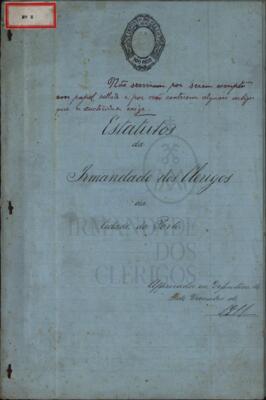 Nº 8
Não serviram por serem escriptos
em papel sellado e por não conterem alguns artigos
que a auctoridade exige
Estatutos
da
Irmandade dos Clerigos
da
Cidade do Porto
IRMANDADE
DOS
CLERIGOS
Approvados em Definitorio de
de Dezembro de